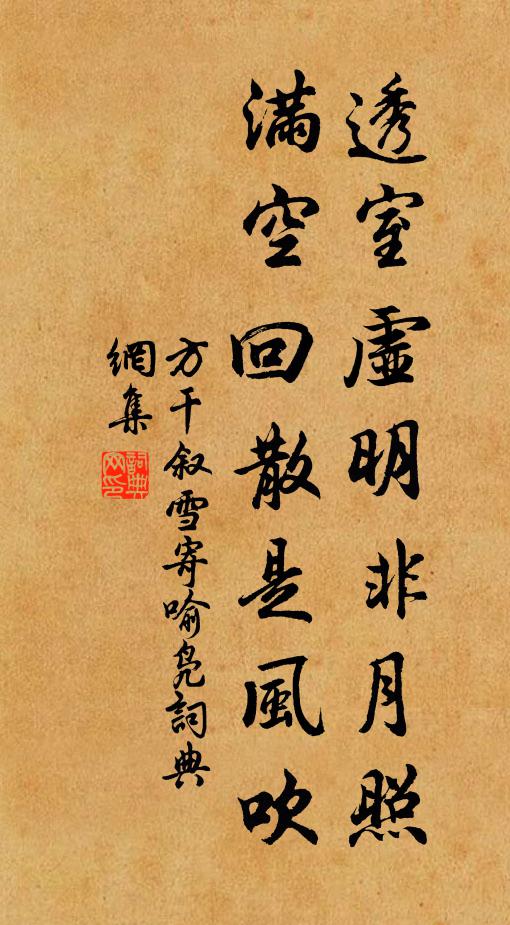 透室虛明非月照
滿空回散是風吹
方干叙雪寄喻凫詞典
網集
詞典網印